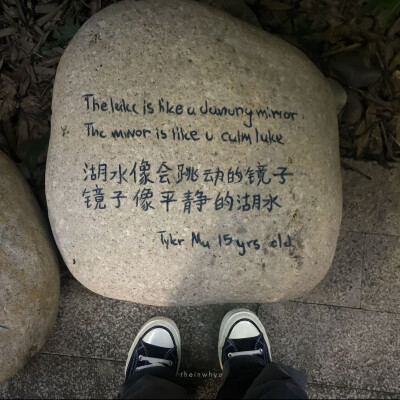 The lake is like a dancing mirror.
The mirror is like a calm lake
湖水像会跳动的镜子
镜子像平静的湖水
Tyler Mu 15 yrs old
theinwhyz